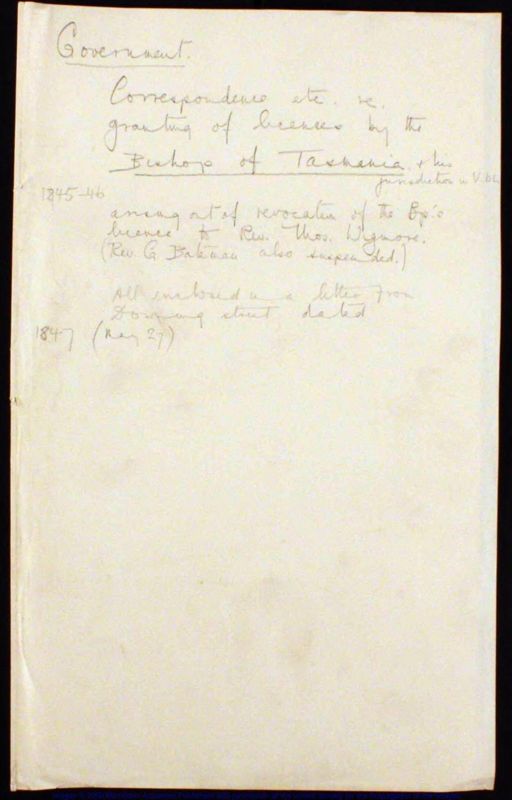 Government.
Correspondence etc. re.
granting of licences by the
Bishop of Tasmania, & his
jurisdiction in V.D.L.
1845-46
arising out of revocation of the Bp's
licence to Rev. Thos. Wigmore.
(Rev. G. Bateman also suspended.)
All enclosed in a letter from
Downing street, dated
1847 (May 27)